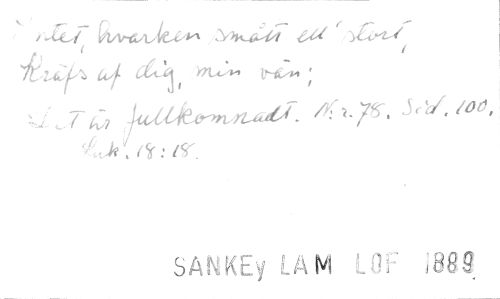 Intet, hvarken smått ell' stort,
Kräfs af dig, min vän;
Det är fullkomnadt. N:r. 78. Sid. 100.
Luk. 18:18.
SANKEy LAM LOF 1889